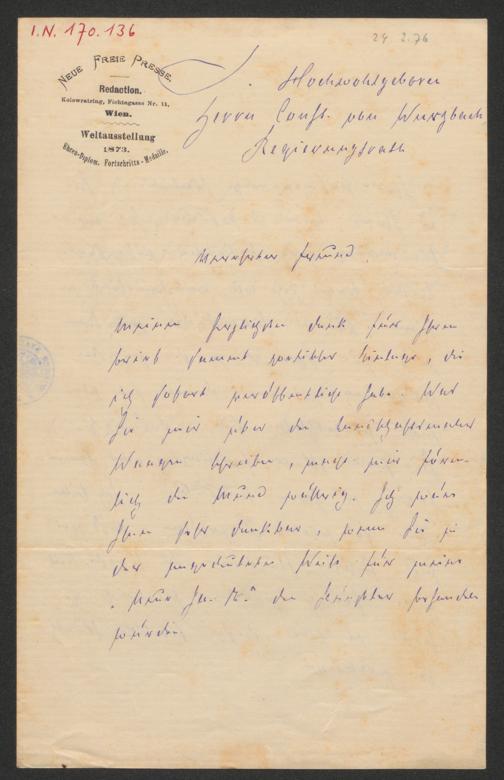 I.N. 170.136
24 2.76
NEUE FREIE PRESSE.
Redaction.
Kolowratring, Fichtegasse Nr. 11,
Wien.
Weltausstellung
1873.
Ehren-Diplom. Fortschritts-Medaille.
Hochwohlgeboren
Herrn Const. von Wurzbach
Regierungsrath
Verehrter Freund.
Meinen herzlichsten Dank für Ihren
Brief sammt Einlage, die
ich sofort veröffentlicht habe. Was
Sie mir über die
Mappen schreiben, macht mir förm-
lich den Mund wässerig. Ich wäre
Ihnen sehr dankbar, wenn Sie in
der angedeuteten Weise für meine
"Neue Fr. Pr." die besorgen
würden.